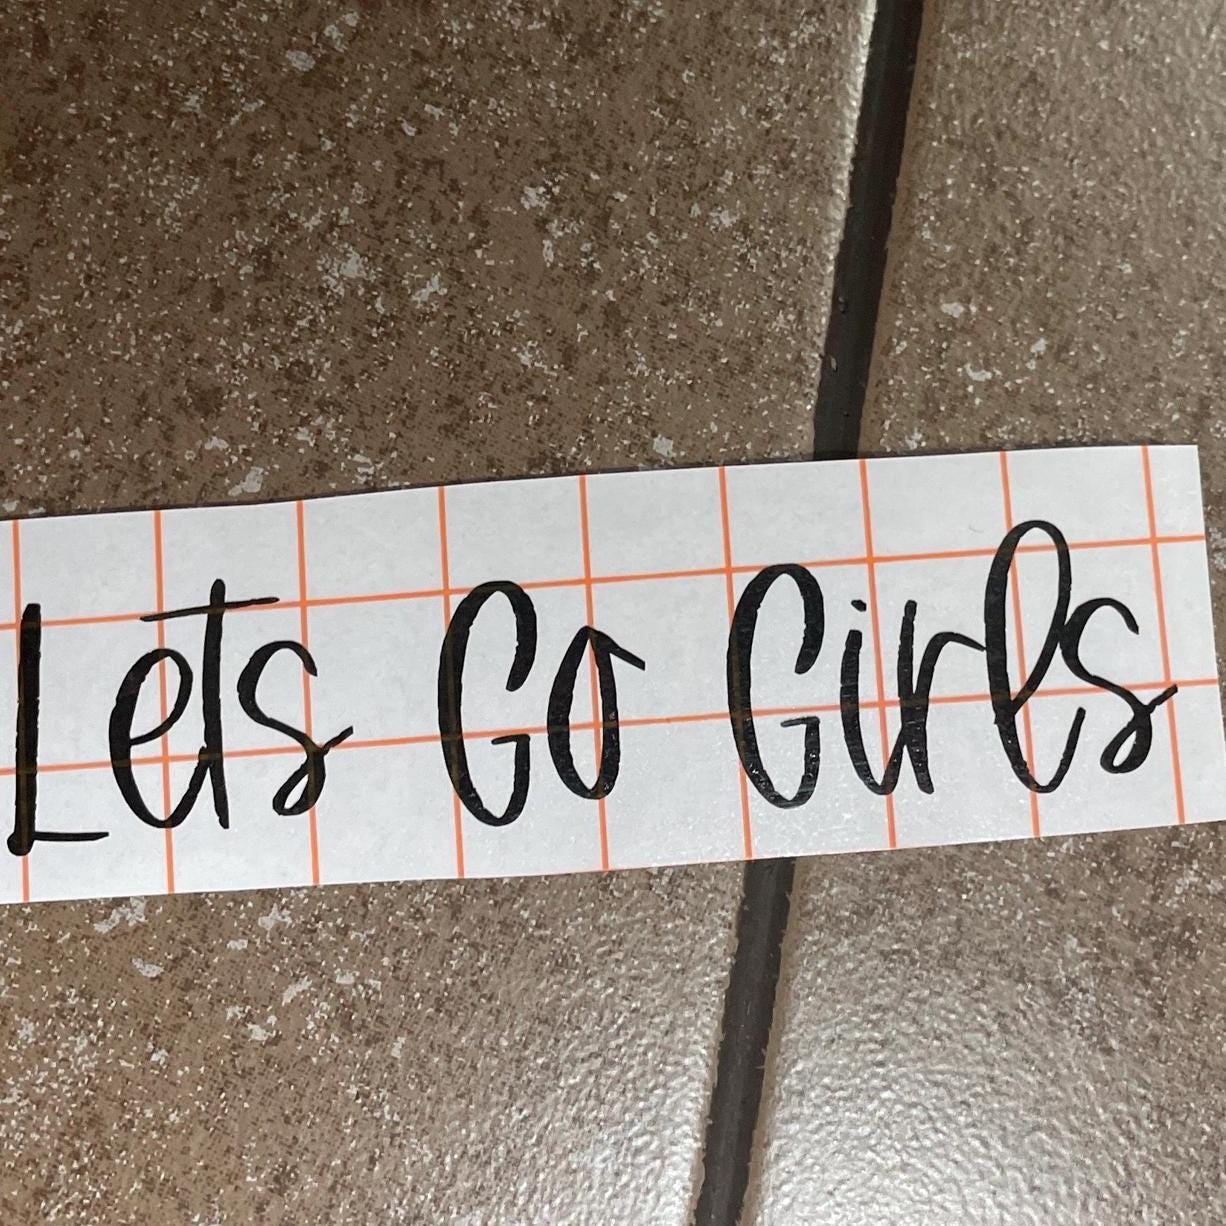 Lets Go Girls